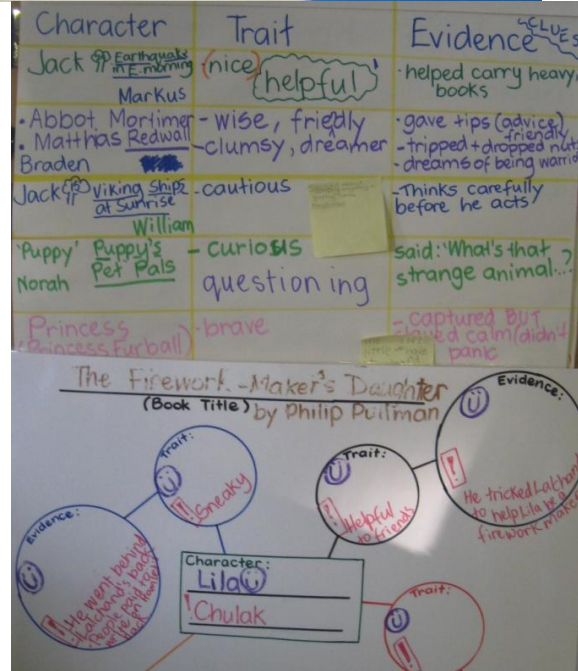 Character Trait Evidence CLUES
Jack Earthquake in E. morning
Markus
(nice) helpful
·helped carry heavy books
·Abbot Mortimer
·Matthias Redwall
Braden
-wise, friedly
-clumsy, dreamer
·gave tips (advice)
friendly
-tripped + dropped nuts
-dreams of being warrio
Jack Viking Ships at Sunrise
William
-cautious
-Thinks carefully
before he acts
'Puppy' Puppy's Pet Pals
Norah
- curious
questioning
said: 'What's that
strange animal...?
Princess
(Princess Furball)
-brave
-captured BUT
stayed calm (didn't
panic
The Firework-Maker's Daughter
(Book Title) by Philip Pullman
Evidence:
He tricked Lalchand
to help Lila be a
firework maker
Trait:
Helpful
to friends
Trait:
Sneaky
Evidence:
He went behind
Lalchand's back
People paid to
Character:
Lila
Chulak
Trait: